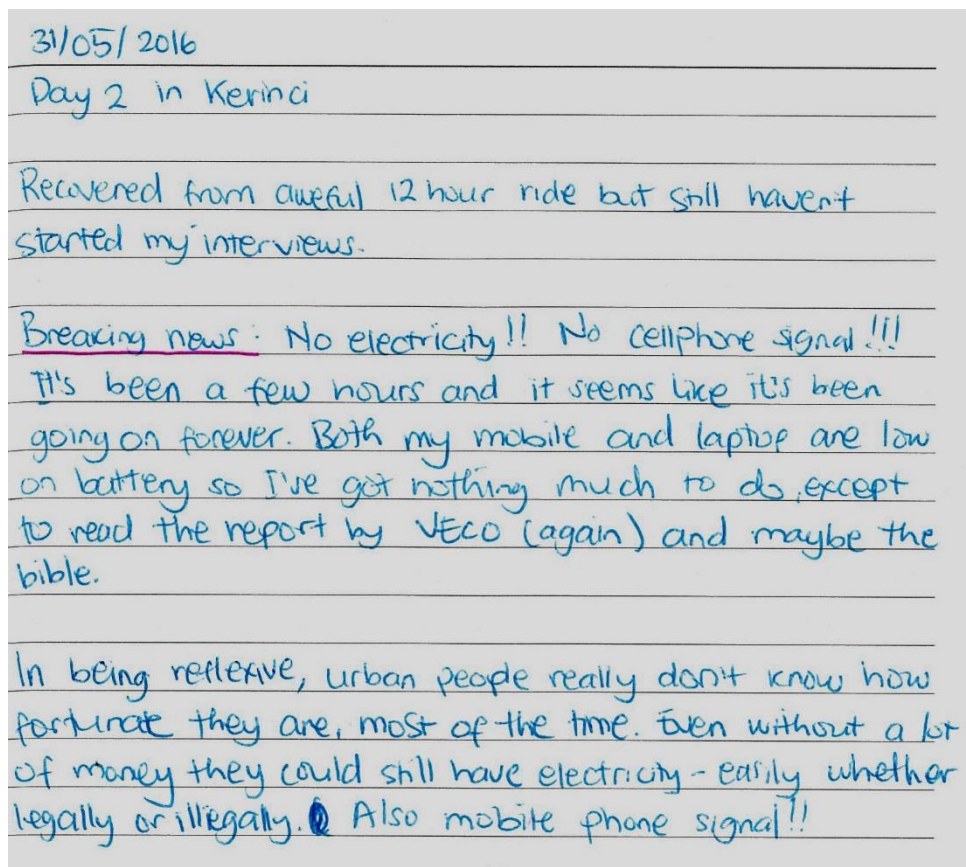 31/05/2016
Day 2 in Kerinci
Recovered from aweful 12 hour ride but still haven't
started my interviews.
Breaking news: No electricity!! No cellphone signal!!!
It's been a few hours and it seems like it's been
going on forever. Both my mobile and laptop are low
on battery so I've got nothing much to do, except
to read the report by VECO (again) and maybe the
bible.
In being reflexive, urban people really don't know how
fortunate they are, most of the time. Even without a lot
of money they could still have electricity - easily whether
legally or illegally. Also mobile phone signal!!